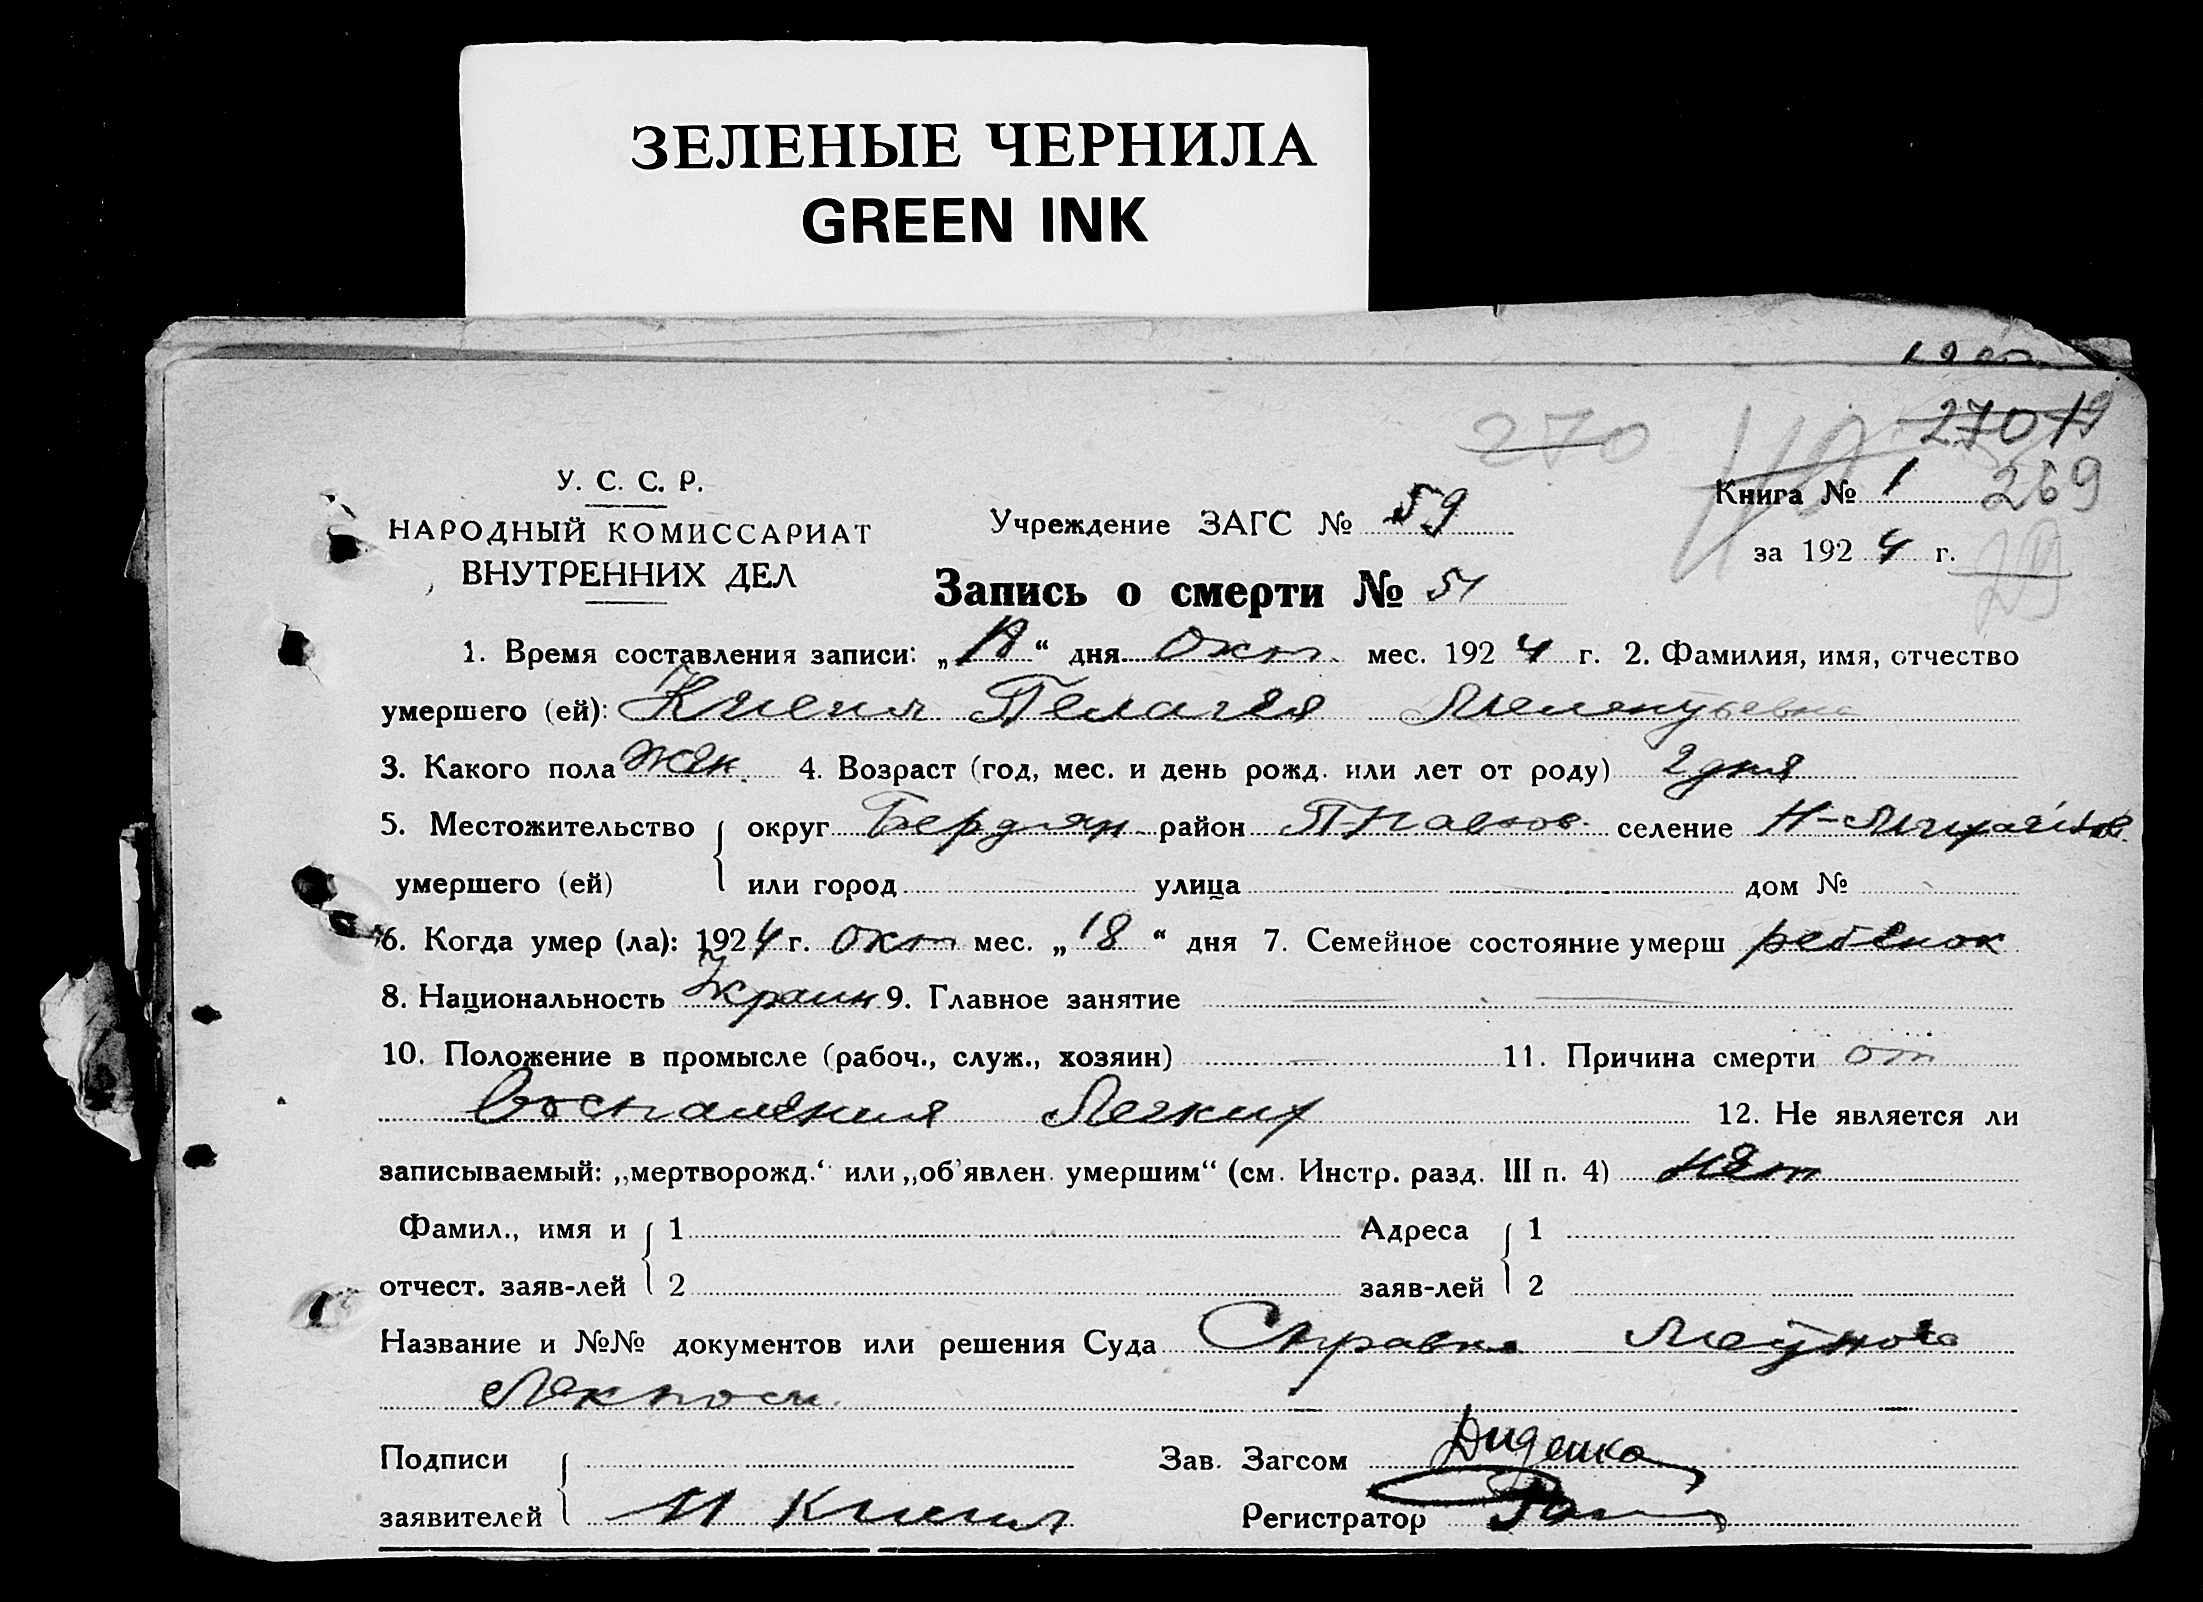 ЗЕЛЕНЫЕ ЧЕРНИЛА
GREEN INK
270 19
270
У. С. С. Р.
Книга № 1 269
НАРОДНЫЙ КОМИССАРИАТ
Учреждение ЗАГС № 59
за 1924 г. 29
ВНУТРЕННИХ ДЕЛ
Запись о смерти № 51
1. Время составления записи: „19“ дня Окт. мес. 1924 г. 2. Фамилия, имя, отчество
умершего (ей): Пелагея
3. Какого пола жен. 4. Возраст (год, мес. и день рожд. или лет от роду) 2 дня
5. Местожительство округ Бердян. район селение Н-Михайлов.
умершего (ей) или город улица дом №
6. Когда умер (ла): 1924 г. окт мес. „18“ дня 7. Семейное состояние умерш ребенок
8. Национальность Украин 9. Главное занятие —
10. Положение в промысле (рабоч., служ., хозяин) — 11. Причина смерти от
Воспаления Легких 12. Не является ли
записываемый: „мертворожд.“ или „об'явлен. умершим“ (см. Инстр. разд. III п. 4) нет
Фамил., имя и 1 Адреса 1
отчест. заяв-лей 2 заяв-лей 2
Название и №№ документов или решения Суда Справка
Подписи Зав. Загсом Диденко
заявителей Регистратор